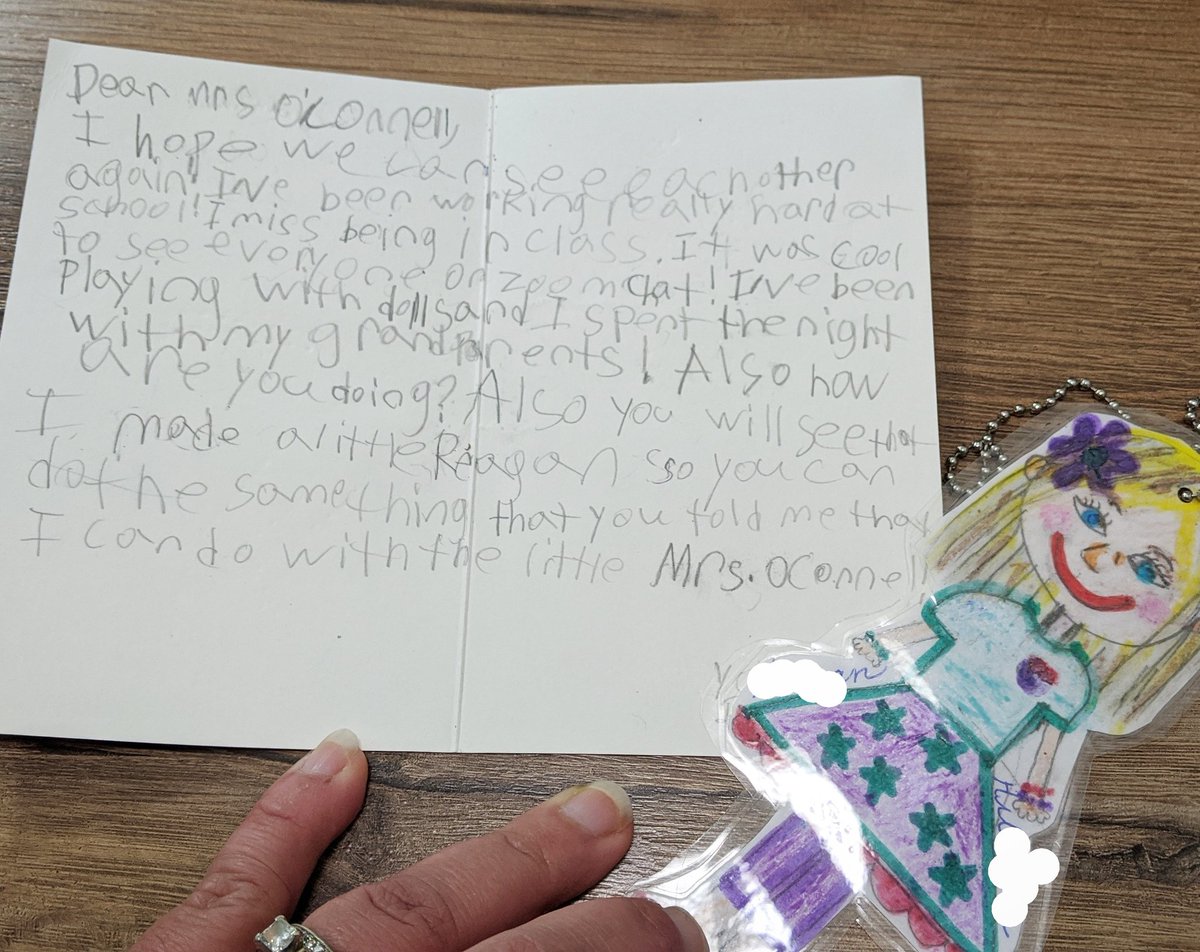 Dear mrs O'Connell,
I hope we can see eachother
again! I've been working really hard at
school! I miss being in class. It was cool
to see everyone on zoom chat! I've been
Playing with dolls and I spent the night
with my grandparents! Also how
are you doing? Also you will see that
I made a little Reagan so you can
do the same thing that you told me that
I can do with the little Mrs. OConnell